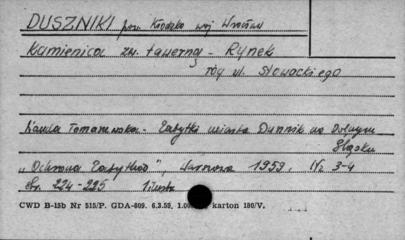 DUSZNIKI pow. Kłodzko woj Wrocław
Kamienica zw. tawerną - Rynek
róg ul. Słowackiego
Wanda Tomaszewska - Zabytki miasta Dusznik na Dolnym
Śląsku
„Ochrona Zabytków", Warszawa 1959, Nr 3-4
str. 224-225
CWD B-15b Nr 515/P. GDA-809. 6.3.59, karton 180/V.